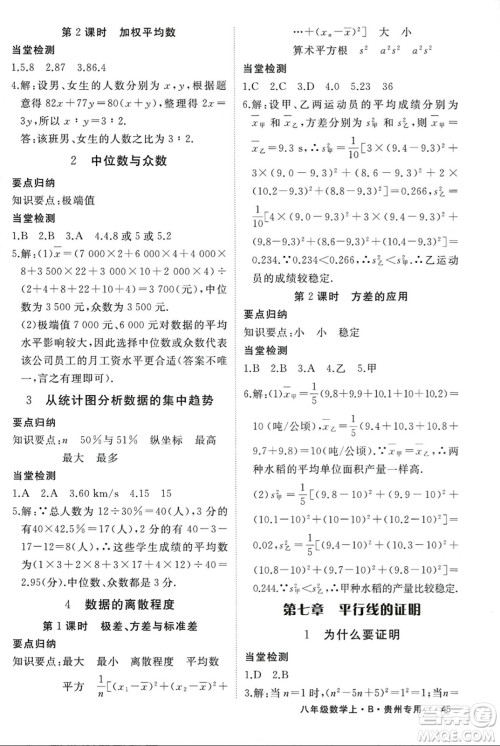 第2课时 加权平均数
当堂检测
1.5.8 2.87 3.86
4.解：设男、女生的人数分别为 x,y,根据题
意得 82x+77y=80(x+y),整理得 2x=
3y,所以 x∶y=3∶2.
答：该班男、女生的人数之比为 3∶2.
2 中位数与众数
要点归纳
知识要点：极端值
当堂检测
1.B 2.A 3.A 4.4.8 或 5 或 5.2
5.解：(1)x̄=(7 000+4 400+2 400×
8+3 500×6+3 000×4+5 500+
4 500)÷(1+1+8+6+4+1+1)=
3 345(元)，
中位数为 3 500元，众数为 2 400元.
(2)极端值 7 000 元对数据的平均
水平影响较大，故中位数更能反映
该公司员工的月工资水平(答案不唯
一，言之有理即可).
3 从统计图分析数据的集中趋势
要点归纳
知识要点：n 50％与 51％ 纵坐标 最高
最大 最多
当堂检测
1.A 2.A 3.60 km/s 4.15 15
5.解：(1)总人数为 12÷30％=40(人)，
40×42.5％=17(人)，8÷40=20％，
17-11=6，补全统计图略.
(2)估计这些学生成绩的平均数为
(3×11+8×2+17×3+12×4)÷40=
2.95(分).中位数、众数都是 3分.
4 数据的离散程度
第1课时 极差、方差与标准差
要点归纳
知识要点：最大 最小 离散程度 平均数
平方 1/n[(x₁-x̄)²+(x₂-x̄)²+
…+(xₙ-x̄)²]
算术平方根 s² s² s²
当堂检测
1.C 2.C 3.D 4.0 5.23 36
6.解：设甲、乙两运动员的平均成绩分别为
x̄甲，x̄乙，方差分别为 s²甲，s²乙.
x̄甲=x̄乙=9.3 s，s²甲=1/10[3×(9.6-9.3)²+
3×(9.0-9.3)²+2×(9.5-9.3)²+
2×(8.5-9.3)²]=0.266，s²乙=1/10[
4×(9.3-9.3)²+3×(9.6-9.3)²+
(8.9-9.3)²+(9.2-9.3)²+
(8.4-9.3)²]=0.234.∵x̄甲=x̄乙，
0.234＜0.266，∴s²乙＜s²甲.∴乙运动
员的成绩较稳定.
第2课时 方差的应用
要点归纳
知识要点：小 小 稳定
当堂检测
1.B 2.D 3.A 4.乙 5.甲
6.解：(1)x̄甲=1/5(9.8+9.9+10.1+10+10.2)=
10(吨/公顷)，x̄乙=1/5(9.4+10.3+
10.8+9.7+9.8)=10(吨/公顷)，∴两
种水稻的平均产量一样高.
(2)s²甲=1/5[(9.8-10)²+(9.9-10)²+(10.1-
10)²+(10-10)²+(10.2-10)²]=0.02，
s²乙=1/5[(9.4-10)²+(10.3-10)²+(10.8-
10)²+(9.7-10)²+(9.8-10)²]=
0.244.∴甲种水稻的产量比较稳定.
第七章 平行线的证明
1 为什么要证明
当堂检测
1.D 2.D
3.解：当 n=1 时，n²+n=1+1=2；当 n=
八年级数学上·B·贵州专用